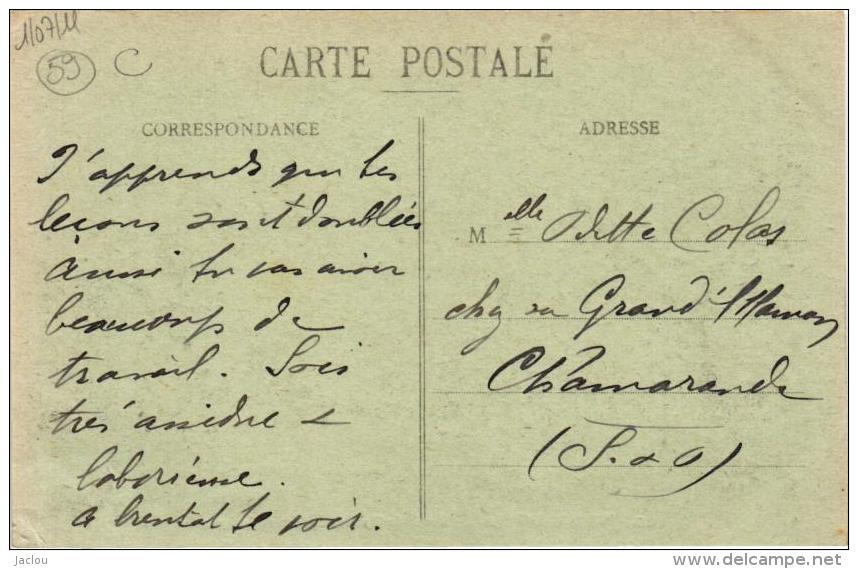 1/07/11
59 C
CARTE POSTALE
CORRESPONDANCE
J'apprends que tes
leçons sont doublées
aussi tu vas avoir
beaucoup de
travail. Sois
très assidue &
laborieuse.
a bientot te voir.
ADRESSE
Melle Odette Colas
chez sa Grand'Maman
Chamarande
(S. & O)
Jaclou
www.delcampe.net